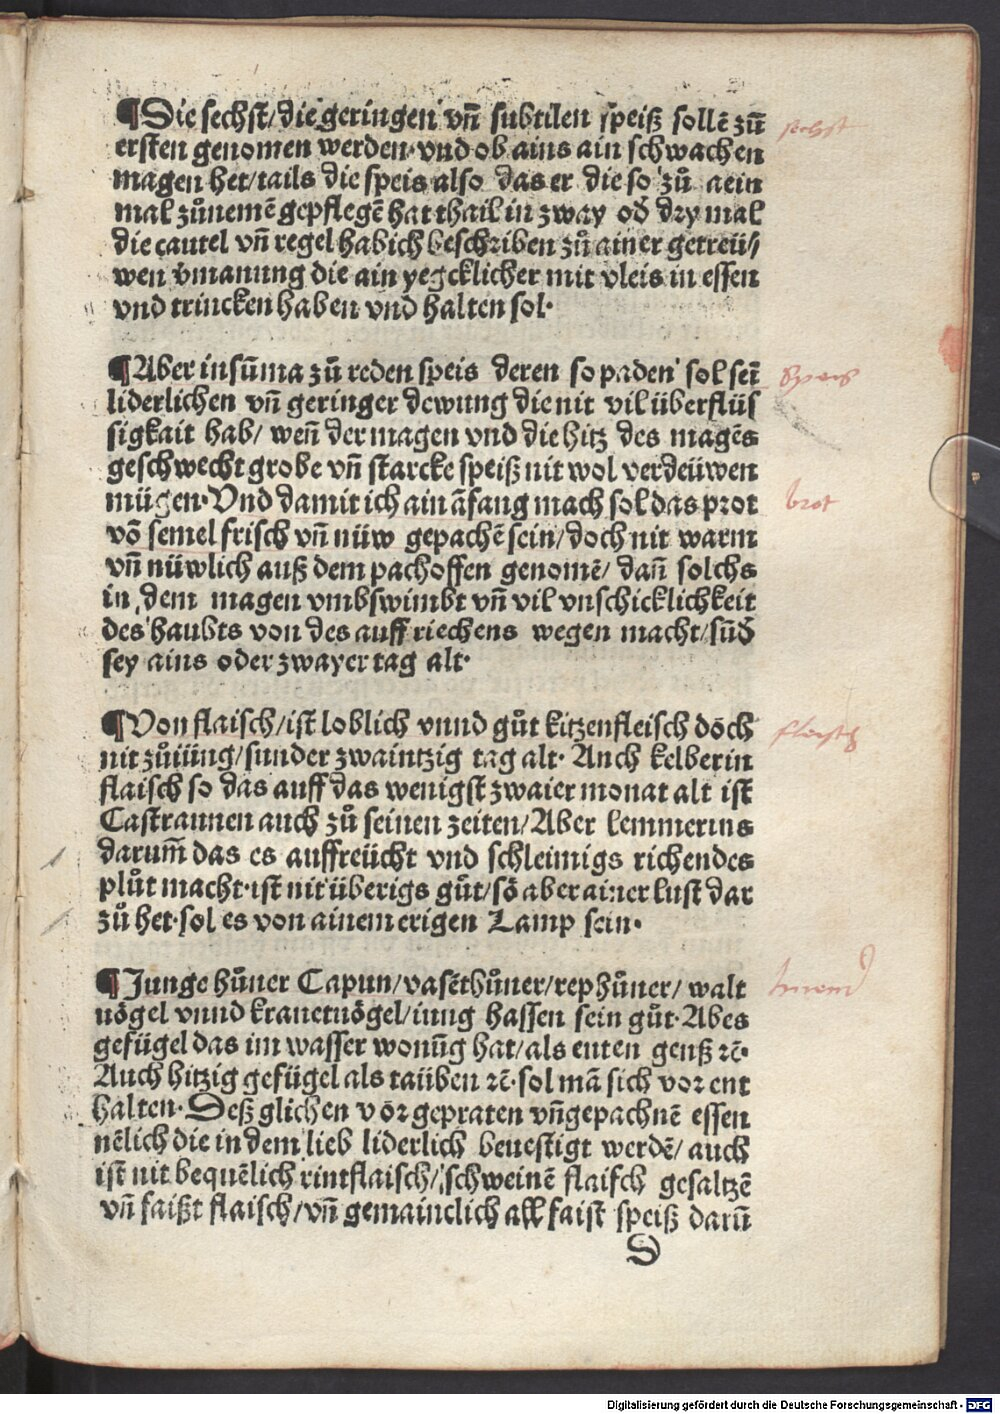 ¶Die sechst/die geringen vñ subtilen speiß sollẽ zũ
ersten genomen werden·vnd ob ains ain schwachen
magen het/tails die speis also das er die so zů aein
mal zůnemẽ gepflegẽ hat thail in zway od̕ dry mal
die cautel vñ regel hab ich beschriben zů ainer getreü/
wen v̈manung die ain yegcklicher mit vleis in essen
vnd trincken haben vnd halten sol·
¶Aber in sũma zů reden speis deren so paden sol seĩ
liderlichen vñ geringer dewung die nit vil überflüs
sigkait hab/ weñ der magen vnd die hitz des magẽs
geschwecht grobe vñ starcke speiß nit wol verdeüwen
mügen·Vnd damit ich ain ãfang mach sol das prot
võ semel frisch vñ nüw gepachẽ sein/doch nit warm
vñ nüwlich auß dem pachoffen genomẽ/ dañ solchs
in dem magen vmbswimbt vñ vil vnschicklichkeit
des haubts von des auff riechens wegen macht/sũd̕
sey ains oder zwayer tag alt·
¶Von flaisch/ist loblich vnnd gůt kitzenfleisch dõch
nit zůiüng/sunder zwaintzig tag alt· Auch kelberin
flaisch so das auff das wenigst zwaier monat alt ist
Castraunen auch zů seinen zeiten/Aber lemmerins
darum̃ das es auffreücht vnd schleimigs richendes
plůt macht·ist nit überigs gůt/sõ aber ainer lust dar
zů het·sol es von ainem erigen Lamp sein·
¶Junge hůner Capun/vasẽthůner/rephůner/ walt
uögel vnnd kranetuögel/iung hassen sein gůt·Abes
gefügel das im wasser wonũg hat/als enten genß ꝛč·
Auch hitzig gefügel als taüben ꝛč·sol mã sich vor ent
halten·Deß glichen võr gepraten vñgepachnẽ essen
nẽlich die in dem lieb liderlich beuestigt werdẽ/ auch
ist nit bequẽlich rintflaisch/schweinẽ flaisch gesaltzẽ
vñ faißt flaisch/vñ gemainclich all faist speiß darũ
D
sechst
Speis
brot
fleisch
Digitalisierung gefördert durch die Deutsche Forschungsgemeinschaft - DFG